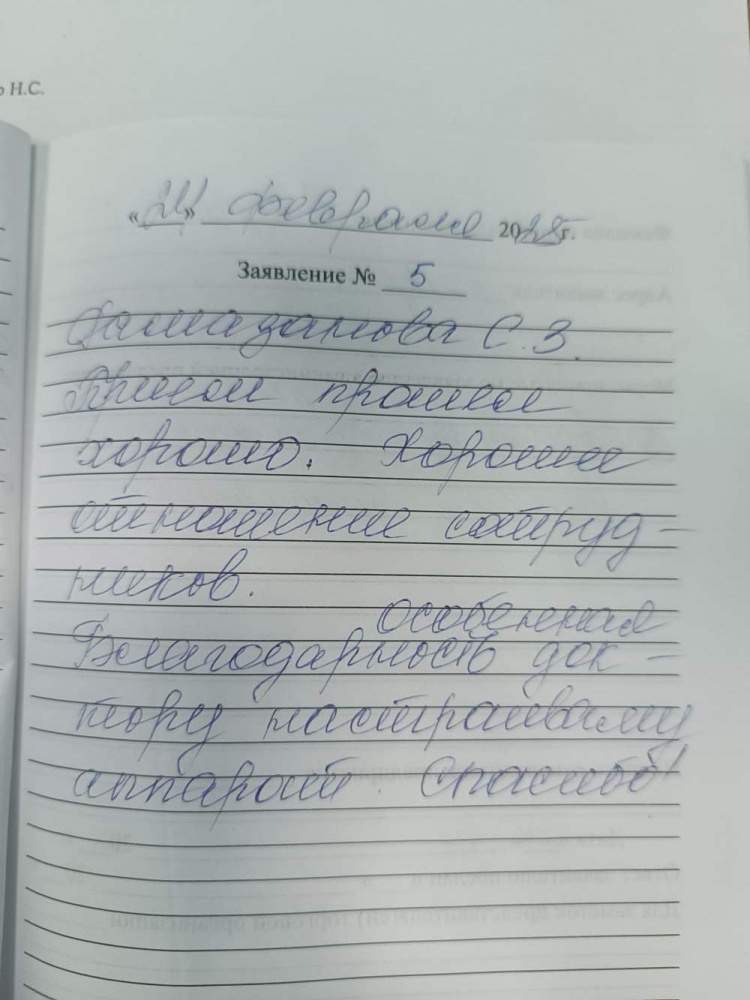 ь Н.С.
«24» февраля 2025г.
Заявление № 5
Рамазанова С.З.
Прием прошел
хорошо. Хорошее
отношение сотруд-
ников.
особенная
Благодарность док-
тору настраиваему
аппарат. Спасибо!